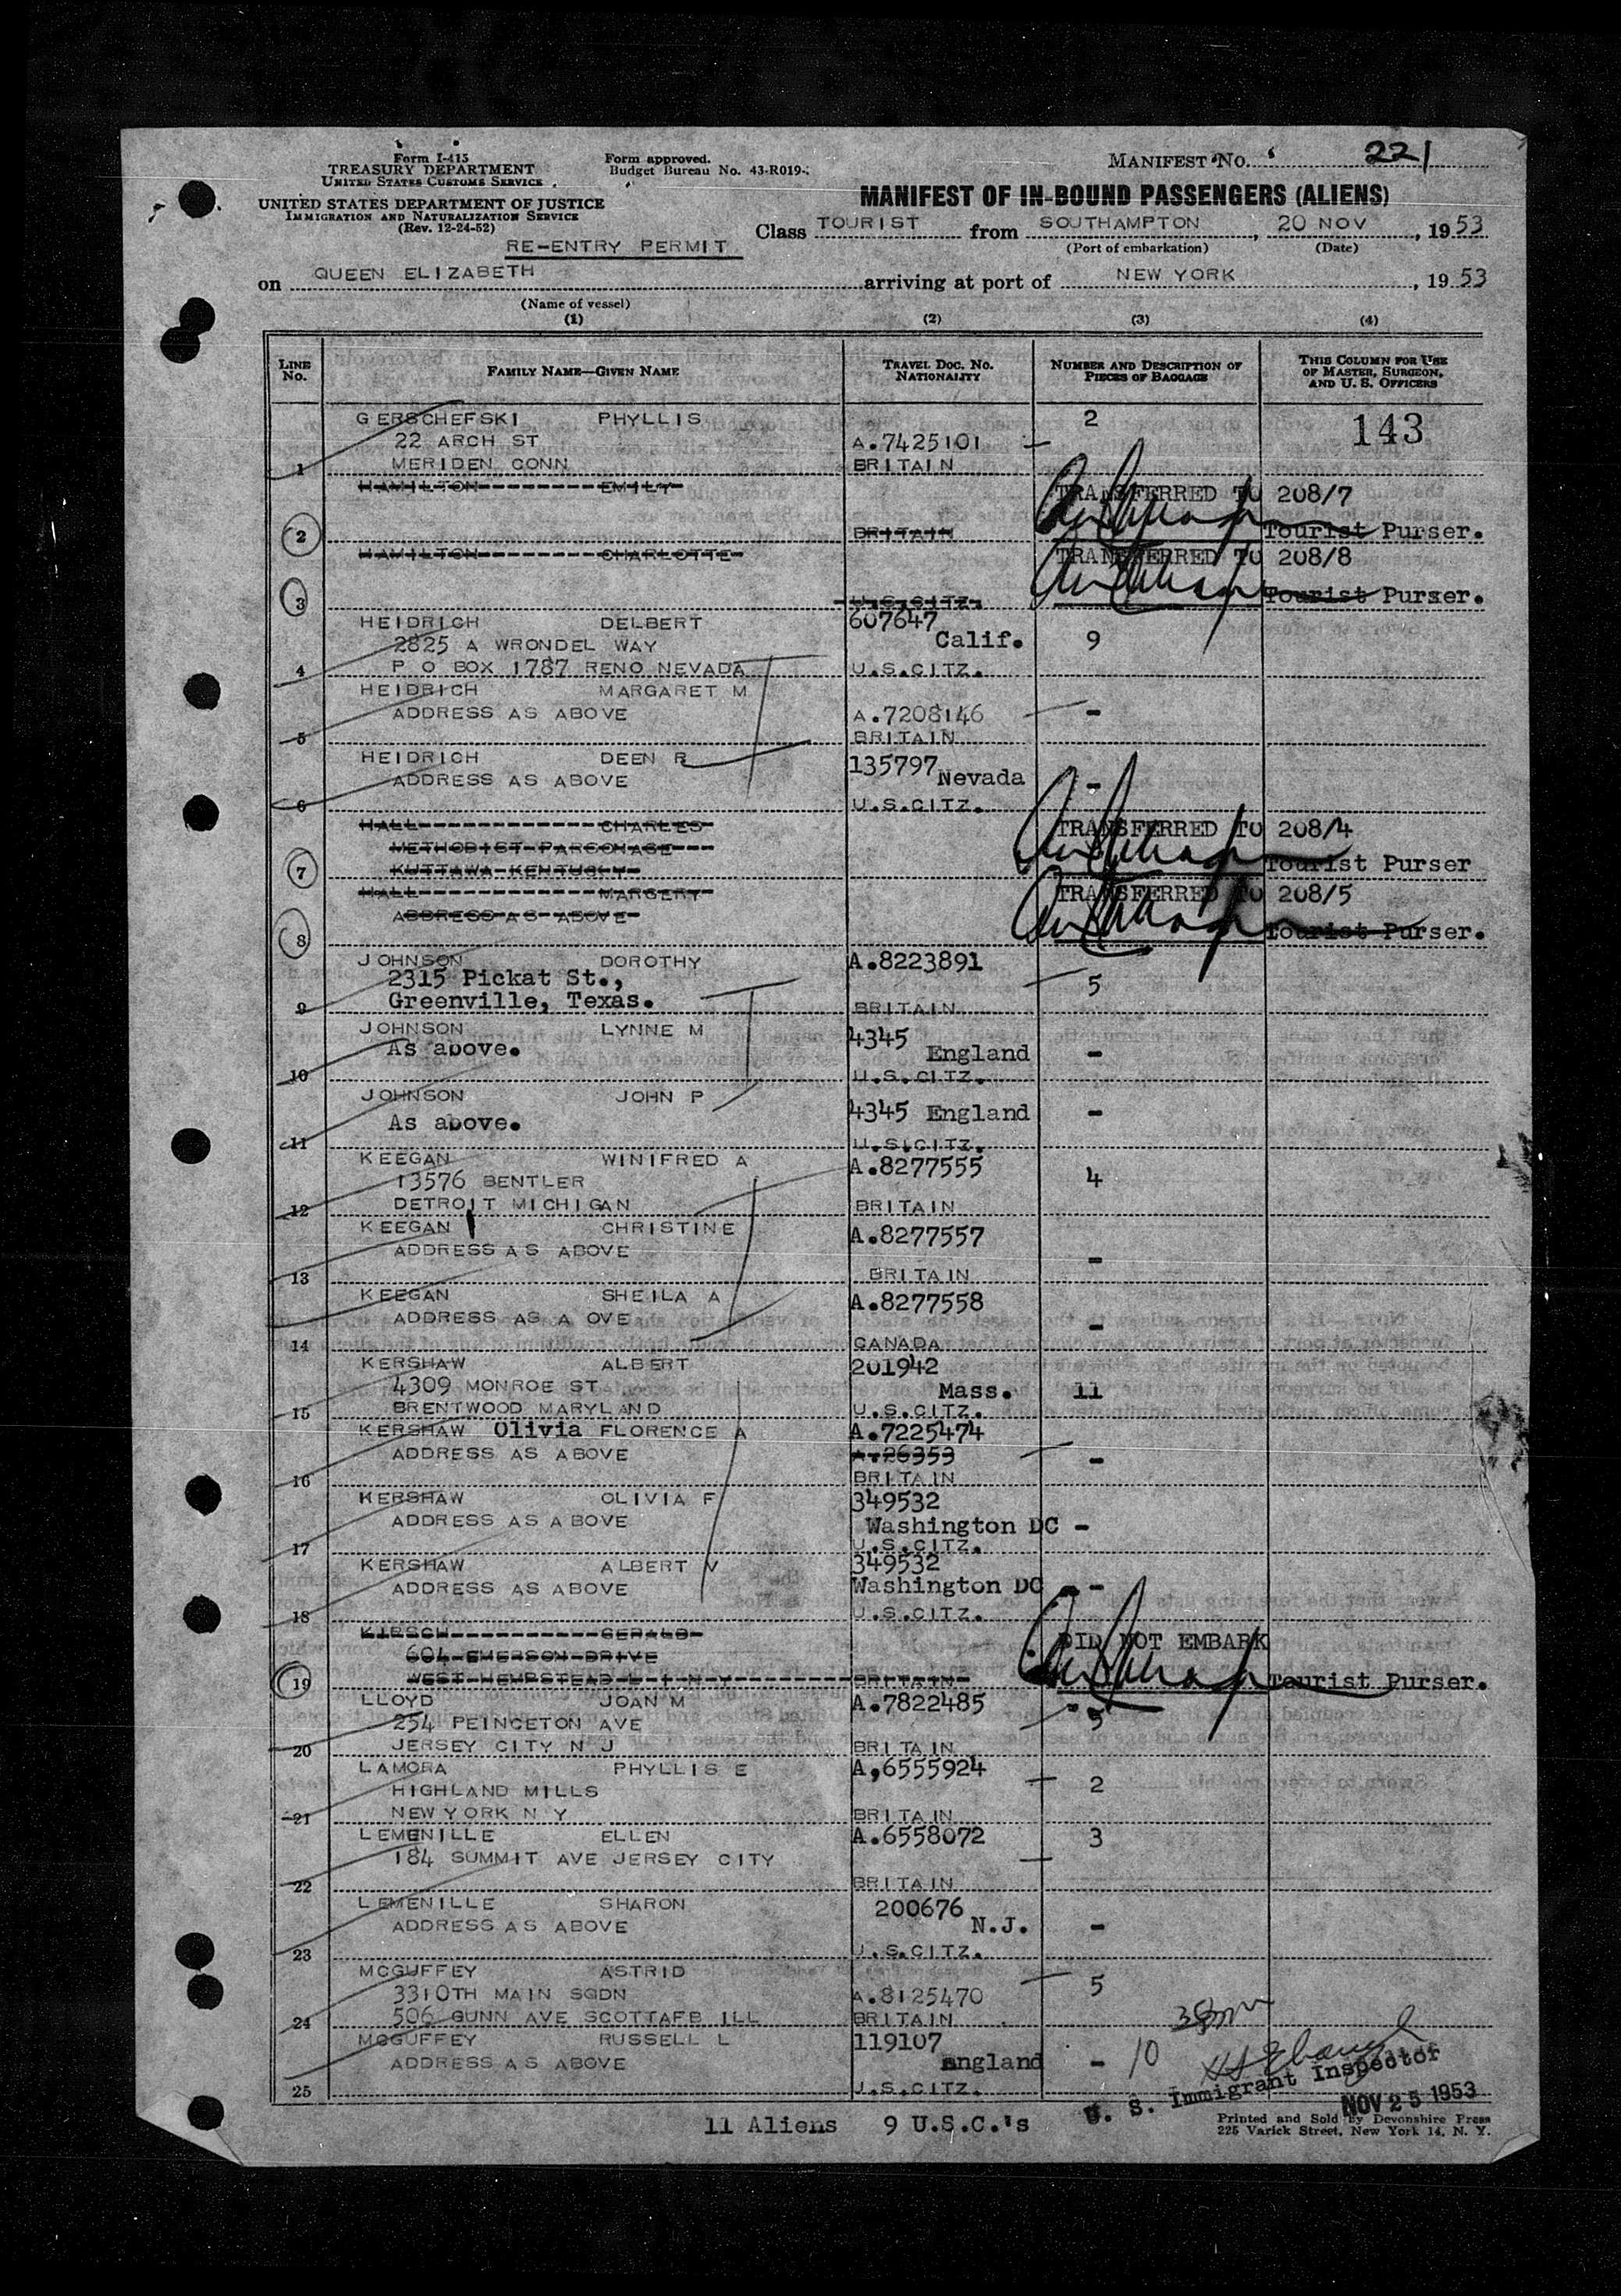 Form I-415
TREASURY DEPARTMENT
UNITED STATES CUSTOMS SERVICE
Form approved.
Budget Bureau No. 43-R019-
MANIFEST No. 221
UNITED STATES DEPARTMENT OF JUSTICE
IMMIGRATION AND NATURALIZATION SERVICE
(Rev. 12-24-52)
MANIFEST OF IN-BOUND PASSENGERS (ALIENS)
RE-ENTRY PERMIT
Class TOURIST from SOUTHAMPTON, 20 NOV, 1953
(Port of embarkation) (Date)
on QUEEN ELIZABETH arriving at port of NEW YORK, 1953
(Name of vessel)
(1) (2) (3) (4)
LINE No.
FAMILY NAME—GIVEN NAME
TRAVEL DOC. NO. NATIONALITY
NUMBER AND DESCRIPTION OF PIECES OF BAGGAGE
THIS COLUMN FOR USE OF MASTER, SURGEON, AND U. S. OFFICERS
GERSCHEFSKI PHYLLIS 2 143
22 ARCH ST A.7425101
1 MERIDEN CONN BRITAIN
HAMILTON EMILY TRANSFERRED TO 208/7
2 BRITAIN Tourist Purser.
HAMILTON CHARLOTTE TRANSFERRED TO 208/8
3 U.S.CITZ. Tourist Purser.
HEIDRICH DELBERT 607647
2825 A WRONDEL WAY Calif. 9
4 P O BOX 1787 RENO NEVADA U.S.CITZ.
HEIDRICH MARGARET M
ADDRESS AS ABOVE A.7208146 -
5 BRITAIN
HEIDRICH DEEN R 135797
ADDRESS AS ABOVE Nevada -
6 U.S.CITZ.
HALL CHARLES TRANSFERRED TO 208/4
METHODIST PARSONAGE
7 KUTTAWA KENTUCKY Tourist Purser
HALL MARGERY TRANSFERRED TO 208/5
ADDRESS AS ABOVE
8 Tourist Purser.
JOHNSON DOROTHY A.8223891
2315 Pickat St., 5
9 Greenville, Texas. BRITAIN
JOHNSON LYNNE M 4345
As above. England -
10 U.S.CITZ.
JOHNSON JOHN P
As above. 4345 England -
11 U.S.CITZ.
KEEGAN WINIFRED A A.8277555
13576 BENTLER 4
12 DETROIT MICHIGAN BRITAIN
KEEGAN CHRISTINE A.8277557
ADDRESS AS ABOVE -
13 BRITAIN
KEEGAN SHEILA A A.8277558
ADDRESS AS A OVE -
14 CANADA
KERSHAW ALBERT 201942
4309 MONROE ST Mass. 11
15 BRENTWOOD MARYLAND U.S.CITZ.
KERSHAW Olivia FLORENCE A A.7225474
ADDRESS AS ABOVE A.26353 -
16 BRITAIN
KERSHAW OLIVIA F 349532
ADDRESS AS ABOVE Washington DC -
17 U.S.CITZ.
KERSHAW ALBERT V 349532
ADDRESS AS ABOVE Washington DC -
18 U.S.CITZ.
KIRSCH GERALD DID NOT EMBARK
604 EMERSON DRIVE
19 WEST HEMPSTEAD L I N Y BRITAIN Tourist Purser.
LLOYD JOAN M A.7822485
254 PEINCETON AVE 5
20 JERSEY CITY N J BRITAIN
LAMORA PHYLLIS E A,6555924
HIGHLAND MILLS 2
21 NEW YORK N Y BRITAIN
LEMENILLE ELLEN A.6558072 3
184 SUMMIT AVE JERSEY CITY
22 BRITAIN
LEMENILLE SHARON 200676
ADDRESS AS ABOVE N.J. -
23 U.S.CITZ.
MCGUFFEY ASTRID 5
3310TH MAIN SQDN A.8125470
24 506 GUNN AVE SCOTTAFB ILL BRITAIN
MCGUFFEY RUSSELL L 119107
ADDRESS AS ABOVE England - 10
25 U.S.CITZ.
U. S. Immigrant Inspector
NOV 25 1953
11 Aliens 9 U.S.C.'s
Printed and Sold by Devonshire Press
225 Varick Street, New York 14, N. Y.